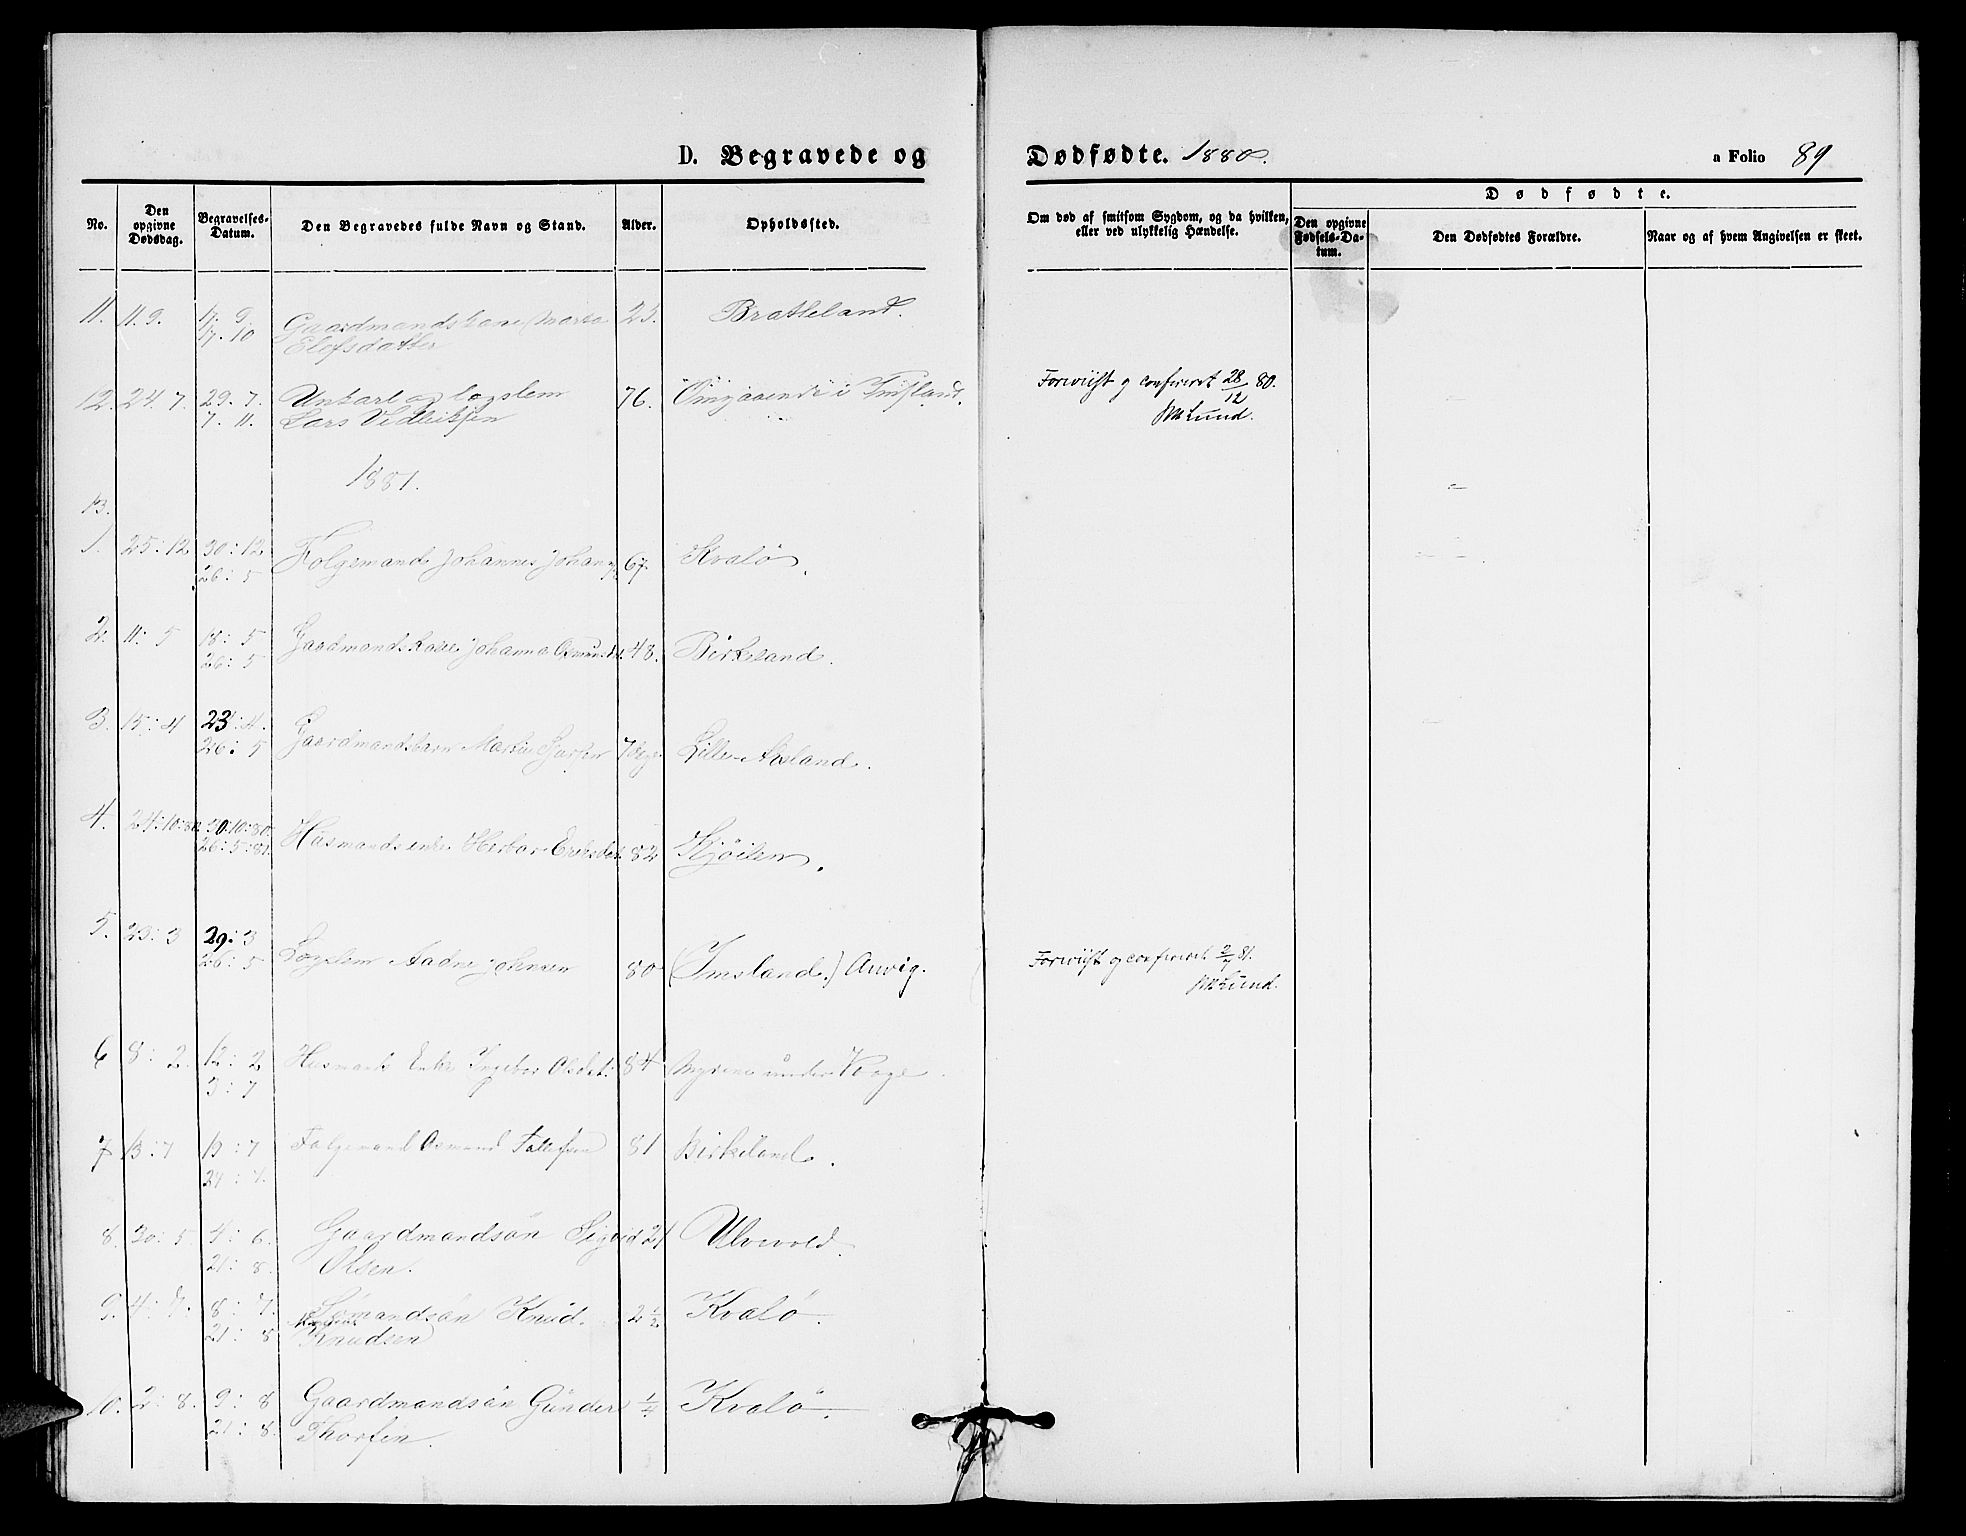 D. Begravede og Dødfødte. 1880.
a Folio 89
No.
Den opgivne Dødsdag.
Begravelses-Datum.
Den Begravedes fulde Navn og Stand.
Alder.
Opholdssted.
Om død af smitsom Sygdom, og da hvilken, eller ved ulykkelig Hændelse.
Dødfødte.
Den opgivne Fødsels-Datum.
Den Dødfødtes Forældre.
Naar og af hvem Angivelsen er skeet.
11. 11. 9. 17. 9. Gaardmandskone Marta 25. Bratteland.
17. 10 Elefsdatter
12. 24. 7. 29. 7. Unkarl og lægslem 76. Omgaaende i Imsland.
7. 11. Lars Vedleiksen
Foreviist og confereret 28/12 80.
Lund.
1881.
13.
1. 25:12 30:12 Folgemand Johannes Johan 67. Kvalö.
26:5
2. 11:5 18:5 Gaardmandskone Johanna Osmundsd. 48. Birkeland.
26:5
3. 15:4 23:4. Gaardmandsbarn 7 Lille-Aasland.
26:5
4. 24:10:80. 30:10:80. Husmandsenke Herbor Eriksdat. 82 Kjöilen.
26:5:81.
5. 23:3 29:3 Lægslem Aadne Johnsen 80 (Imsland.) Anvig.
26:5
Foreviist og confereret 2/7 81.
Lund.
6 8:2. 12:2 Husmands Enke Ingebor Olsdat: 84 Myrene under Vaage.
3:7
7 13:7 19:7 Folgemand Osmund Tollefsen 81 Birkeland.
24:7.
8. 30:5 4:6. Gaardmandsön Sigvid 21 Ulvevold.
21:8. Olsen.
9. 4:7. 8:7. Sömandsön Knud. 2 1/2 Kvalö.
21:8 Knudsen
10. 2:8. 9:8 Gaardmandsön Gunder 1/4 Kvalö.
21:8. Thorsen.